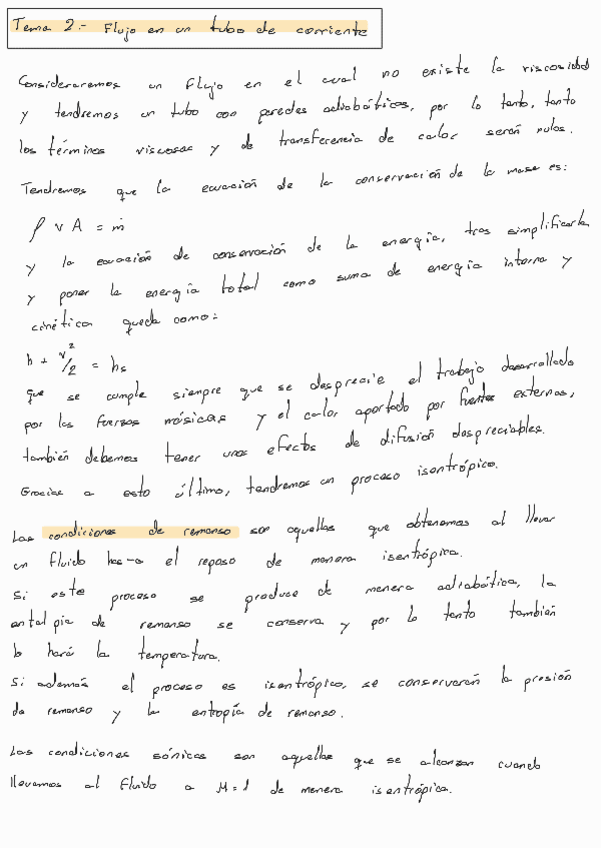 Tema 2.- Flujo en un tubo de corriente
Consideraremos un flujo en el cual no existe la viscosidad
y tendremos un tubo con paredes adiabáticas, por lo tanto, tanto
los términos viscosas y de transferencia de calor serán nulos.
Tendremos que la ecuación de la conservación de la masa es:
ρ v A = ṁ
y la ecuación de conservación de la energía, tras simplificarla
y poner la energía total como suma de energía interna y
cinética queda como:
h + v²/2 = hs
que se cumple siempre que se desprecie el trabajo desarrollado
por las fuerzas másicas y el calor aportado por fuentes externas,
también debemos tener unos efectos de difusión despreciables.
Gracias a esto último, tendremos un proceso isentrópico.
Las condiciones de remanso son aquellas que obtenemos al llevar
un fluido has-a el reposo de manera isentrópica.
Si este proceso se produce de manera adiabática, la
entalpia de remanso se conserva y por lo tanto también
lo hará la temperatura.
Si además el proceso es isentrópico, se conservarán la presión
de remanso y la entropía de remanso.
Las condiciones sónicas son aquellas que se alcanzan cuando
llevamos al fluido a M=1 de manera isentrópica.